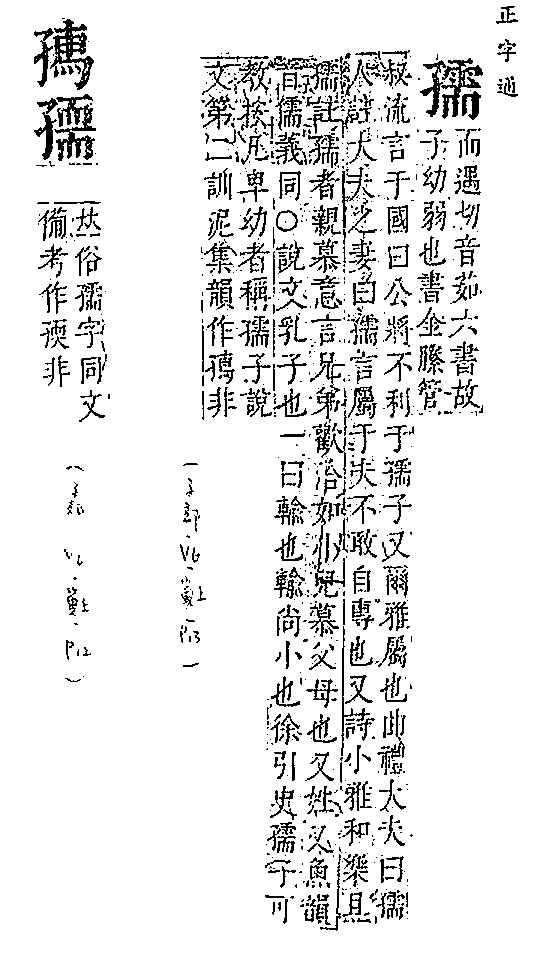 正字通
孺
而遇切音茹六書故
子幼弱也書金縢管
叔流言于國曰公將不利于孺子又爾雅屬也曲禮大夫曰孺
人註大夫之妻曰孺言屬于夫不敢自專也又詩小雅和樂且
孺註孺者親慕意言兄弟歡洽如小兒慕父母也又姓又魚韻
音儒義同○說文乳子也一曰輸也輸尚小也徐引史孺子可
教按凡卑幼者稱孺子說
文第二訓泥集韻作㻔非
𠀤俗孺字同文
備考作㼲非
(子部·V6·寅上·P13)
(子部·V6·寅上·P12)